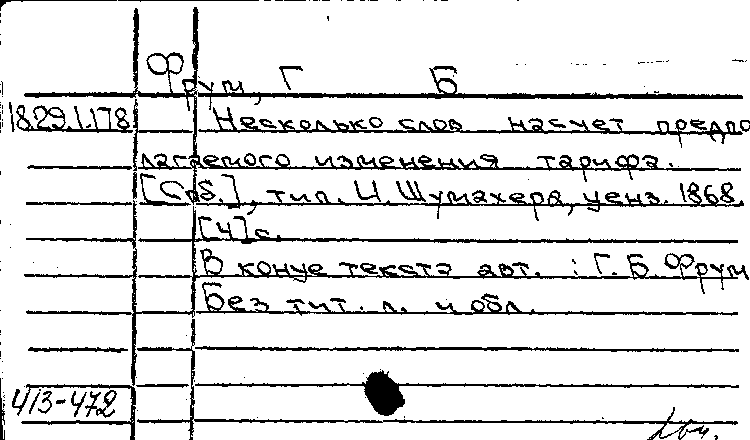 Фрум, Г Б
18.29.1.178 Несколько слов насчет предпо
лагаемого изменения тарифа.
[Спб.], тип. И. Шумахера, ценз. 1868.
[4]с.
В конце текста авт. : Г. Б. Фрум
Без тит. л. и обл.
413-472